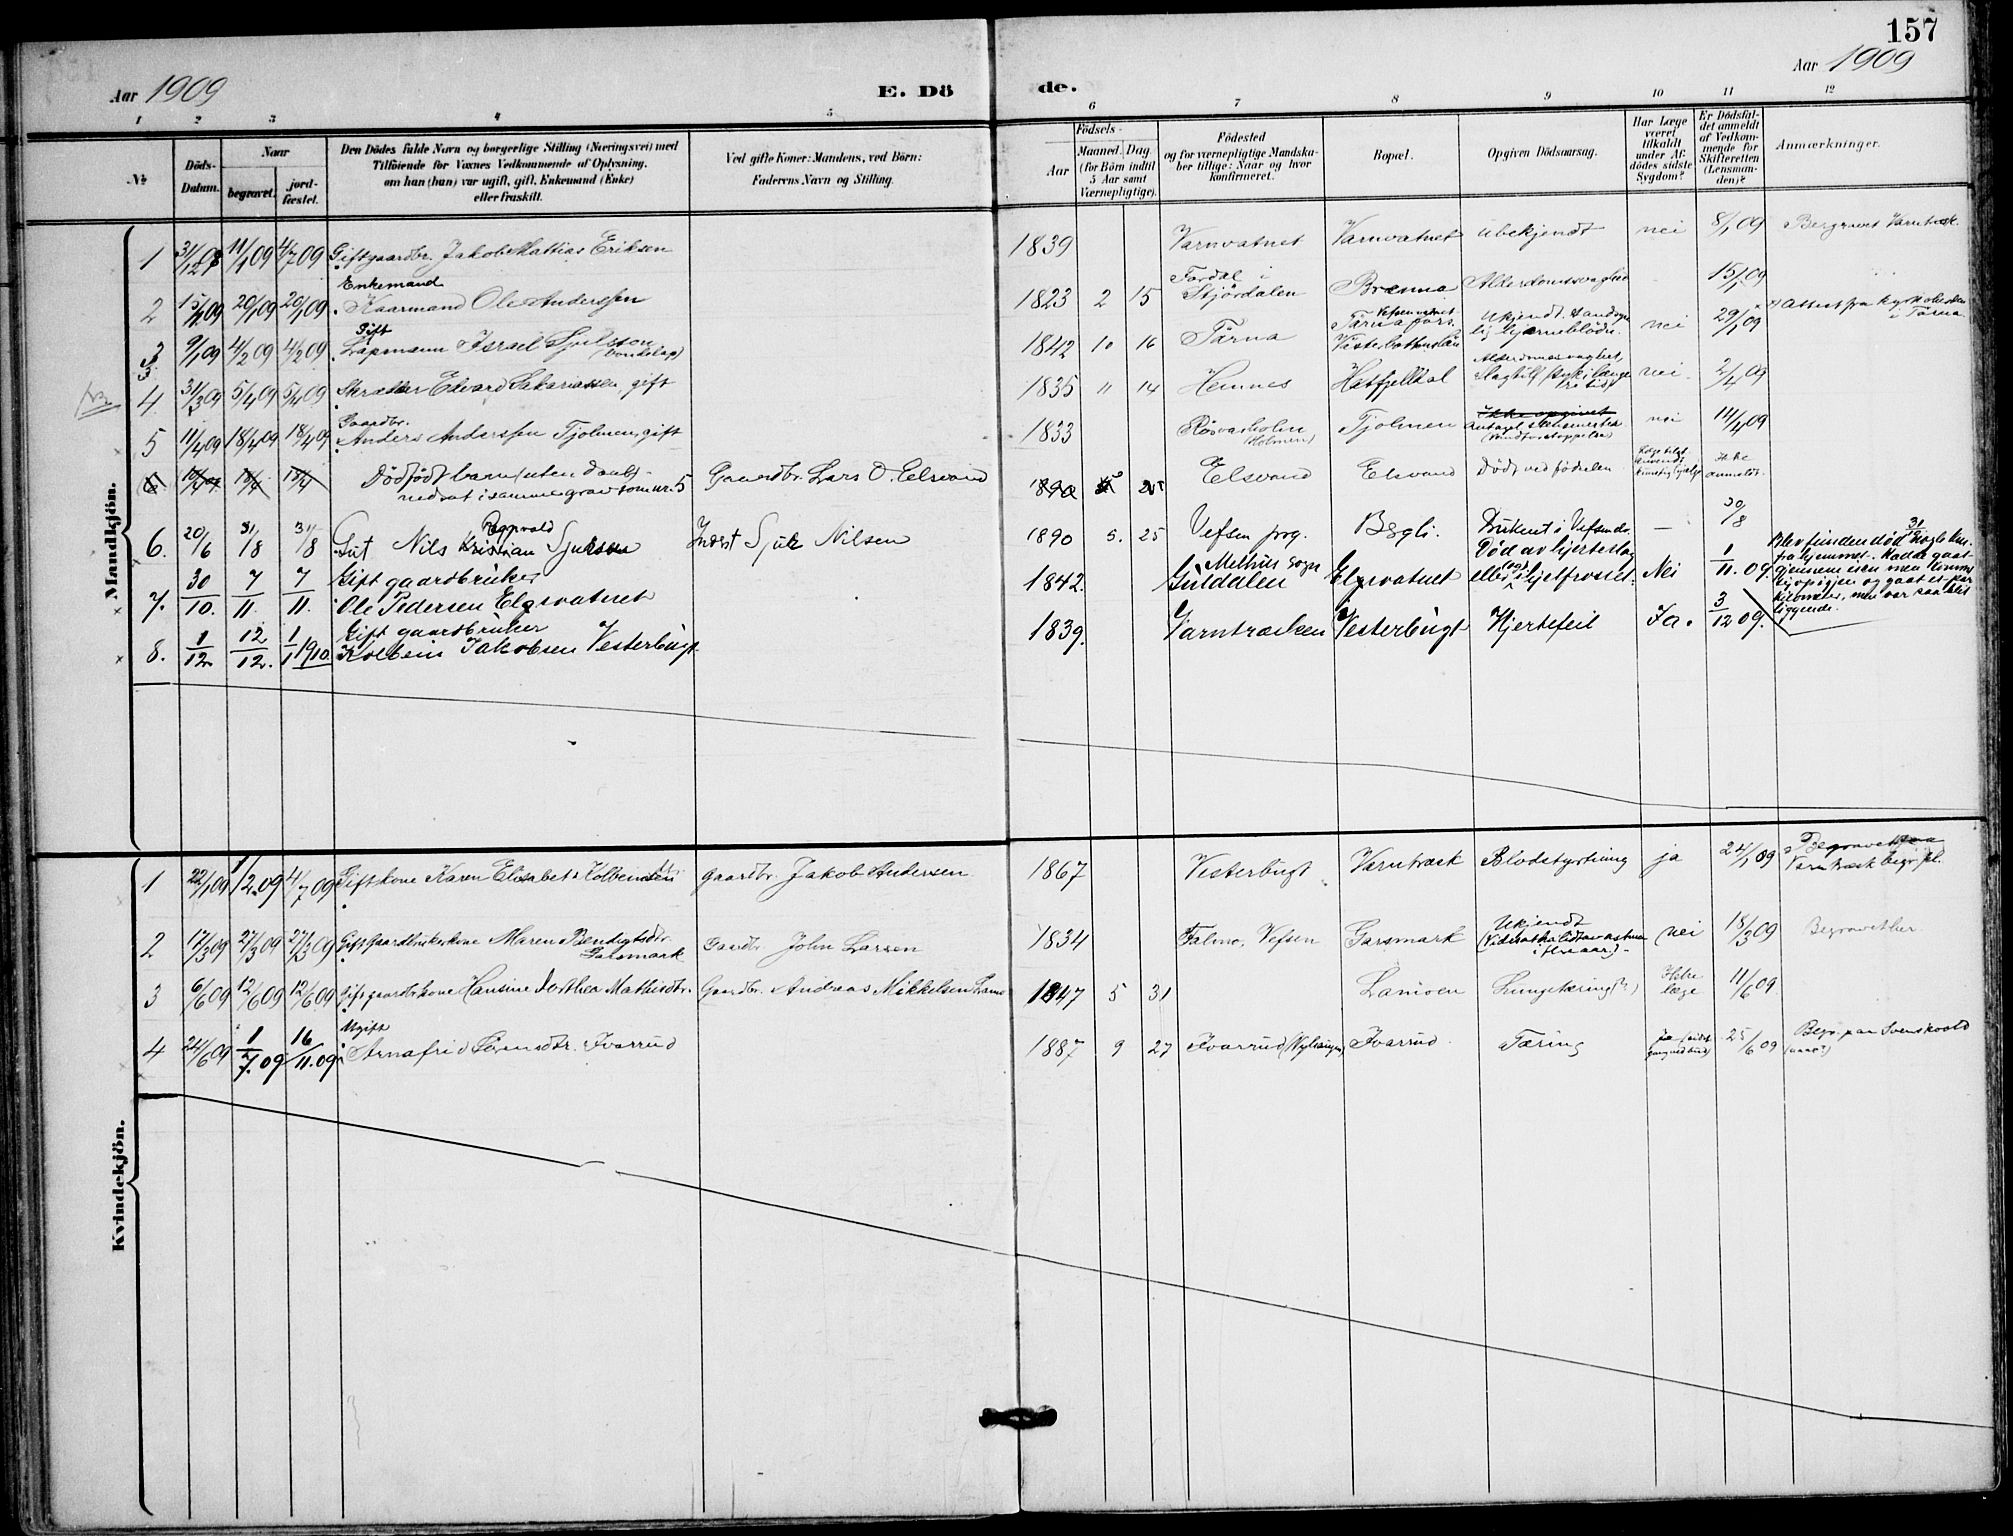 157
Aar 1909
E. Dö
de.
Aar 1909
1 2 3 4 5 6 7 8 9 10 11 12
№
Döds-
Datum.
Naar
begravet.
jord-
fæstet.
Den Dödes fulde Navn og borgerlige Stilling (Næringsvei) med
Tilföiende for Voxnes Vedkommende af Oplysning,
om han (hun) var ugift, gift, Enkemand (Enke)
eller fraskilt.
Ved gifte Koner: Mandens, ved Börn:
Faderens Navn og Stilling.
Födsels-
Aar
Maaned. Dag
(for Börn indtil
5 Aar samt
Værnepligtige).
Födested
og for værnepligtige Mandska-
ber tillige: Naar og hvor
konfirmeret.
Bopæl.
Opgiven Dödsaarsag.
Har Læge
været
tilkaldt
under Af-
dödes sidste
Sygdom?
Er Dödsfal-
det anmeldt
af Vedkom-
mende for
Skifteretten
(Lensman-
den)?
Anmærkninger.
Mandkjön.
1 31/12 08 11/1 09 4/7 09 Gift gaardbr. Jakob Mattias Eriksen 1839 Varnvatnet Varnvatnet ubekjendt nei 8/1 09 Begravet Varntræsk.
Enkemand Fordal i
2 15/1 09 20/1 09 20/1 09 Kaarmand Ole Anderssen 1823 2 15 Stjördalen Brenna Alderdomssvaghed 15/1 09
Gift
3 9/1 09 4/2 09 4/2 09 Lapmann Israel Sjulsson 1842 10 16 Tärna nei 29/1 09
4 31/3 09 5/4 09 5/4 09 Skrædder Edvard Sakariassen, gift 1835 11 14 Hemnes Hatfjelldal nei 2/4 09
Gaardbr.
5 11/4 09 18/4 09 18/4 09 Anders Anderssen Tjolmen, gift 1833 Rösvasholm (Holmen) Tjolmen nei 14/4 09
Ikke opgivet
6 18/4 18/4 Dödfödt barn (uten daab)- Gaardbr. Lars O. Elsvand 1890 Elsvand Elsvand Död ved födselen Ikke anmeldt
nedsat i samme grav som nr. 5
Ragnvald
6. 20/6 31/8 31/8 Gut Nils Kristian Sjulsen Inderst Sjul Nilsen 1890 5. 25 Vefsen prg. Bsgli. Druknet i Vefsna — 30/8
7. 30/10. 7/11. 7/11. Gift gaardbruker
Ole Pedersen Elgsvatnet 1842. Melhus sogn
Guldalen Elgsvatnet Död av hjerteslag
eller (og) ihjelfrosset. Nei 1/11. 09.
Blev funden död 31/10
8. 1/12. 12/12. 1/1 1910. Gift gaardbruker
Kolbein Jakobsen Vesterbugt 1839. Varntræsken Vesterbugt Hjertefeil Ja. 3/12 09.
Kvindekjön.
1 22/1 09 1/2 09 4/7 09 Gift kone Karen Elisabet Kolbeinsdtr Gaardbr. Jakob Andersen 1867 Vesterbugt Varntræsk Blodstyrtning ja 24/1 09 Begravet paa
Varntræsk begr.pl.
2 17/3 09 27/3 09 27/3 09 Gift Gaardbrukerkone Maren Bendigtsdtr. Gaardbr. John Larsen 1834 Falmo, Vefsen Garsmark Ukjendt nei 18/3 09 Begravet her
3 6/6 09 12/6 09 12/6 09 Gift gaardbr.kone Hansine Dorthea Mathisdtr. Gaardbr. Andreas Mikkelsen 1847 5 31 Lamoen Lungetæring (?) Ikke
læge 11/6 09
Ugift
4 24/6 09 1/7. 09 16/11. 09 Arnafrid Sörensdtr. Ivarrud 1887 9 27 Ivarrud Ivarrud Tæring 25/6 09 Begr. paa Svenskvold